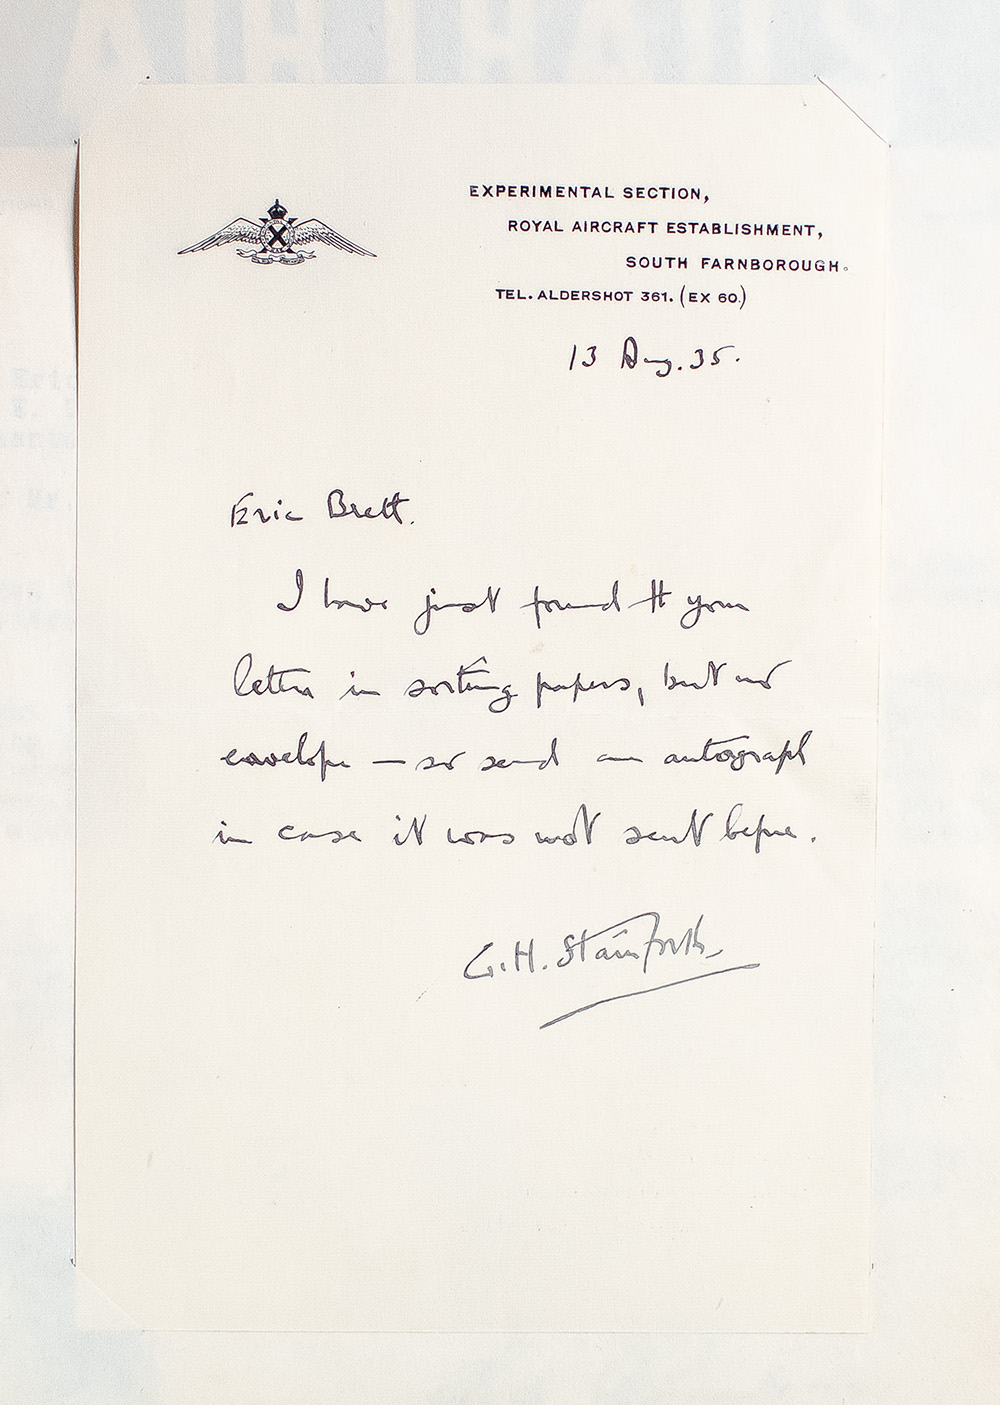 EXPERIMENTAL SECTION,
ROYAL AIRCRAFT ESTABLISHMENT,
SOUTH FARNBOROUGH.
TEL. ALDERSHOT 361. (EX 60.)
13 Aug. 35.
Eric Brett.
I have just found tt your
letter in sorting papers, but no
envelope — so send an autograph
in case it was not sent before.
G. H. Stainforth